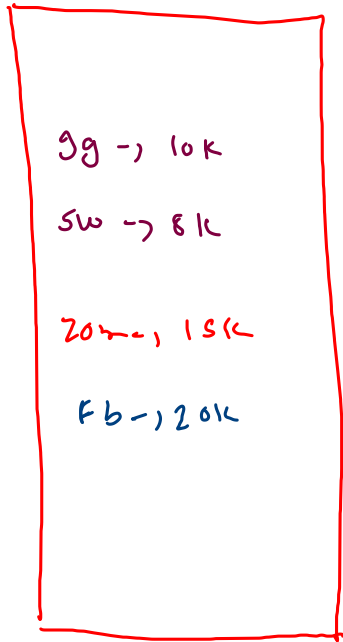 gg -> 10K
sw -> 8K
Zom -> 15K
Fb -> 20K